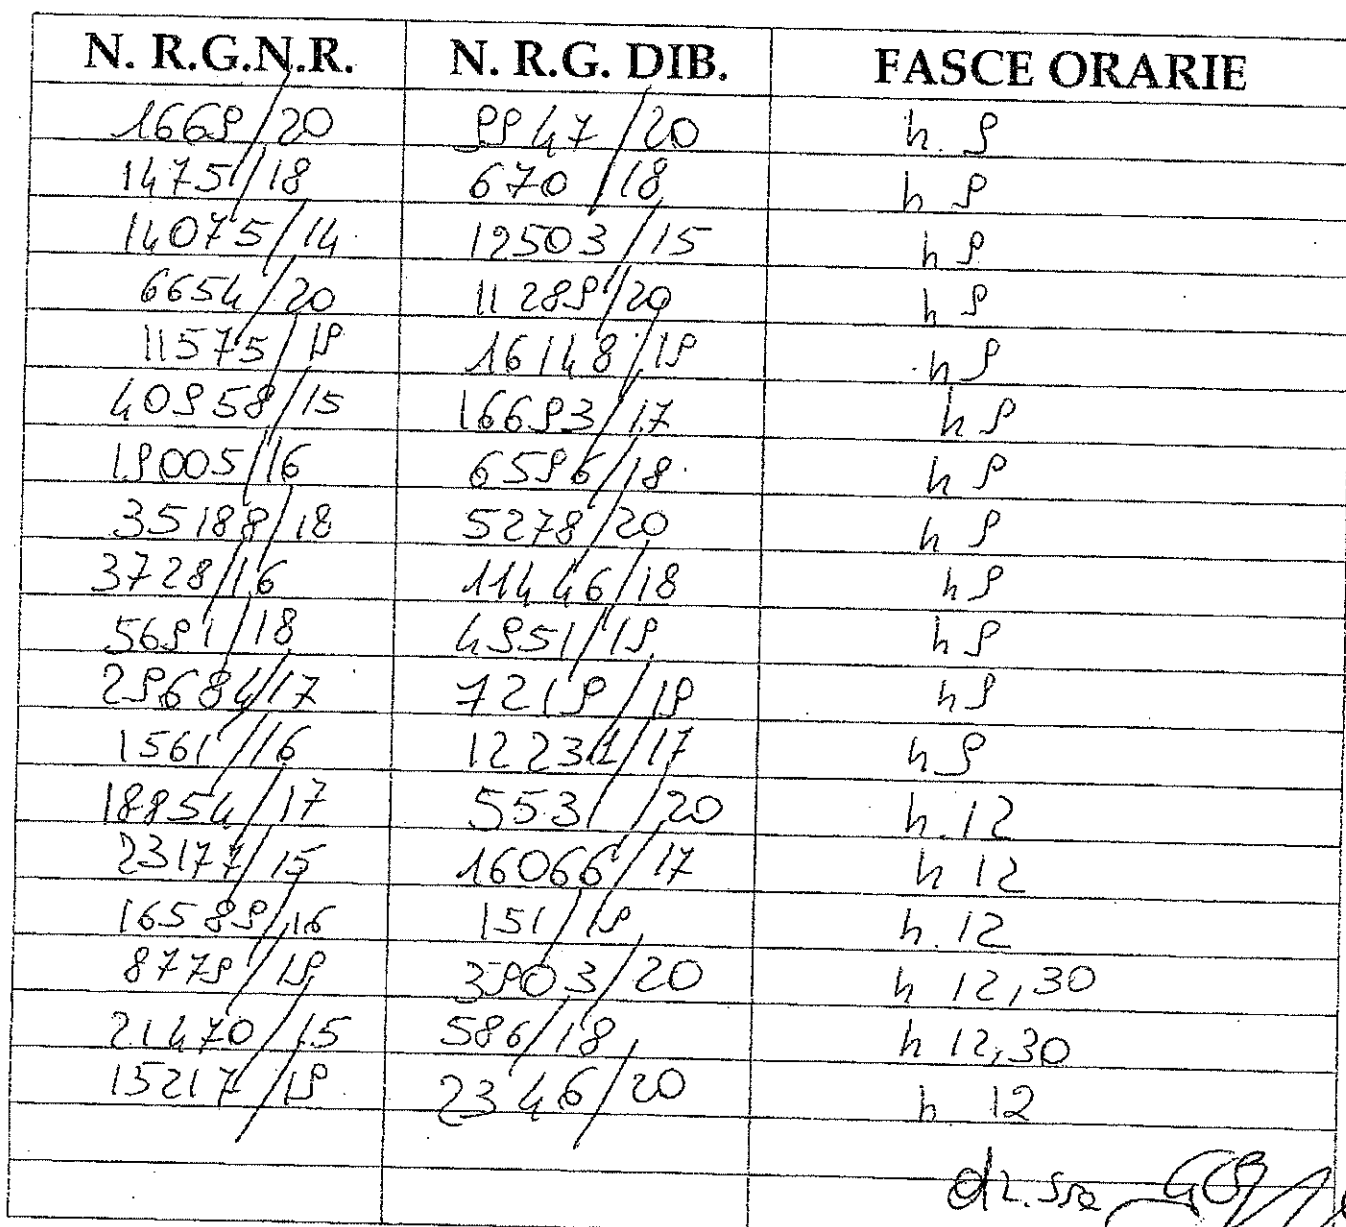 N. R.G.N.R. N. R.G. DIB. FASCE ORARIE
1669/20 9947/20 h. 9
1475/18 670/18 h 9
14075/14 12503/15 h 9
6654/20 11289/20 h 9
11575/19 16148/19 h 9
40958/15 16693/17 h 9
19005/16 6596/18 h 9
35188/18 5278/20 h 9
3728/16 11446/18 h 9
5691/18 4951/19 h 9
29684/17 7219/19 h 9
1561/16 12231/17 h 9
18854/17 5531/20 h. 12
23177/15 16066/17 h 12
16589/16 151/19 h. 12
8779/19 3903/20 h 12,30
21470/15 586/18 h 12,30
15217/19 2346/20 h 12
dr.ssa